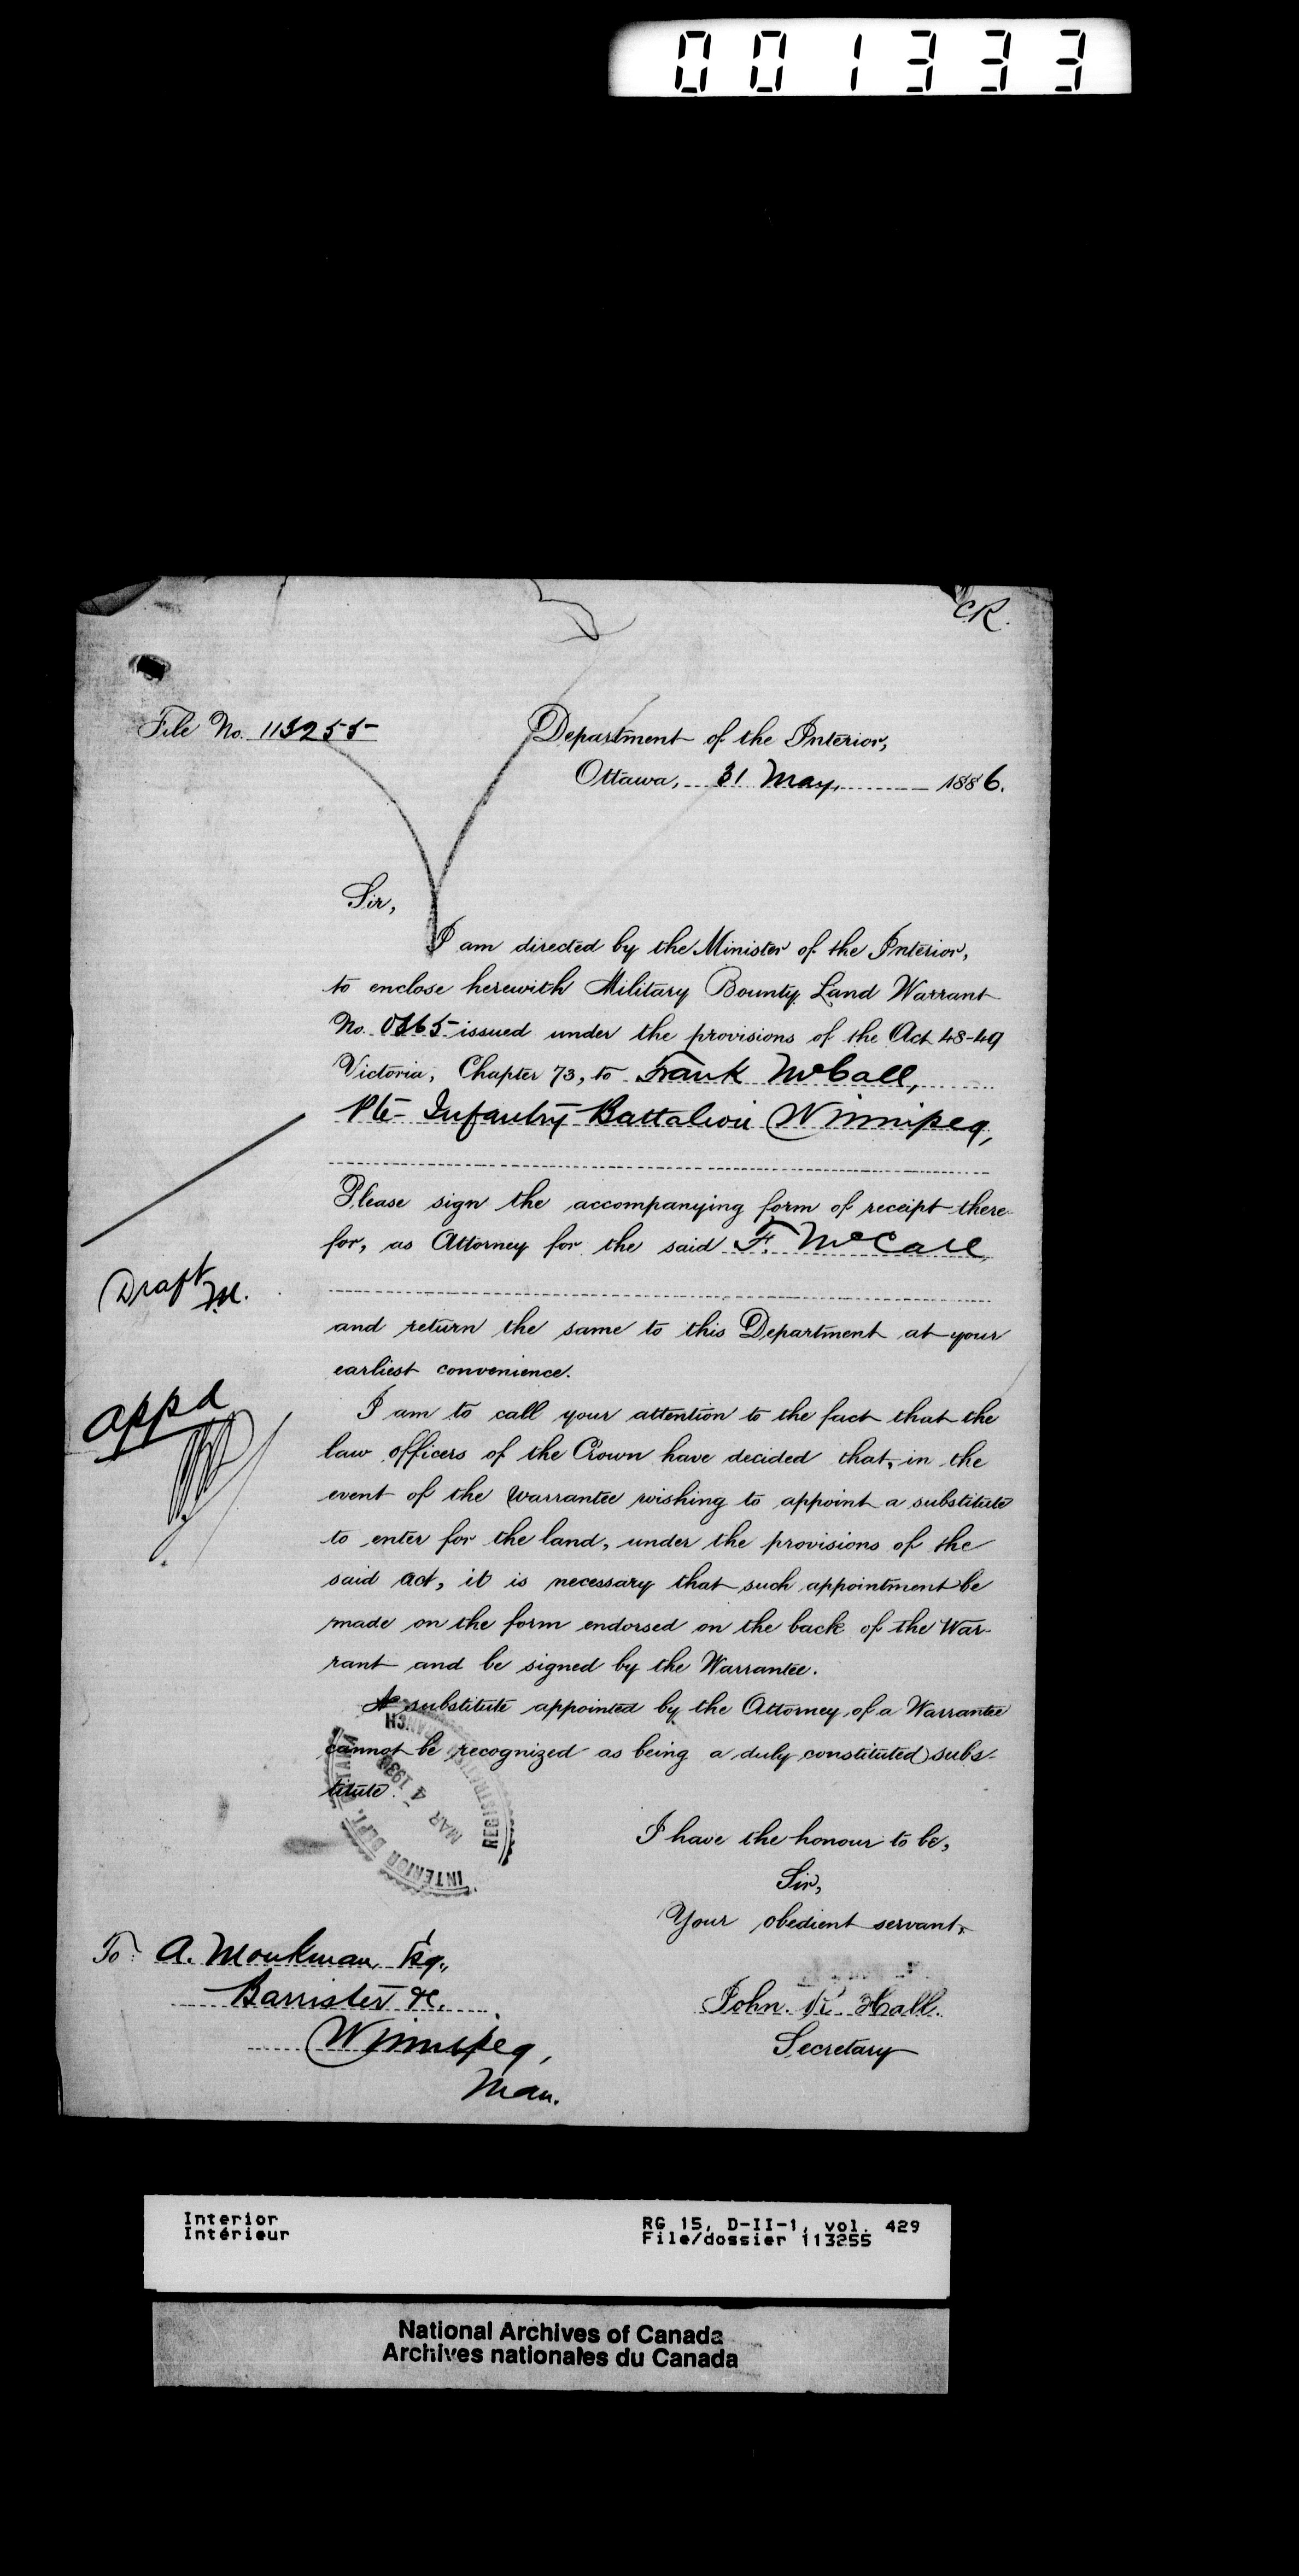 001333
CR.
File No. 113255
Department of the Interior,
Ottawa, 31 May, 1886.
Sir,
I am directed by the Minister of the Interior,
to enclose herewith Military Bounty Land Warrant
No. 0365 issued under the provisions of the Act 48-49
Victoria, Chapter 73, to Frank McCall,
Pte Infantry Battalion Winnipeg,
Please sign the accompanying form of receipt there-
for, as Attorney for the said F. McCall,
Draft
and return the same to this Department at your
earliest convenience.
appd
I am to call your attention to the fact that the
law officers of the Crown have decided that, in the
event of the Warrantee wishing to appoint a substitute
to enter for the land, under the provisions of the
said Act, it is necessary that such appointment be
made on the form endorsed on the back of the War-
rant and be signed by the Warrantee.
A substitute appointed by the Attorney of a Warrantee
cannot be recognized as being a duly constituted subs-
titute.
INTERIOR DEPT.
MAR 4
REGISTRATION BRANCH
I have the honour to be,
Sir,
Your obedient servant,
To: A. Monkman, Esq.,
Barrister &c.
Winnipeg,
Man.
John. R. Hall.
Secretary
Interior
Intérieur
RG 15, D-II-1, vol. 429
File/dossier 113255
National Archives of Canada
Archives nationales du Canada